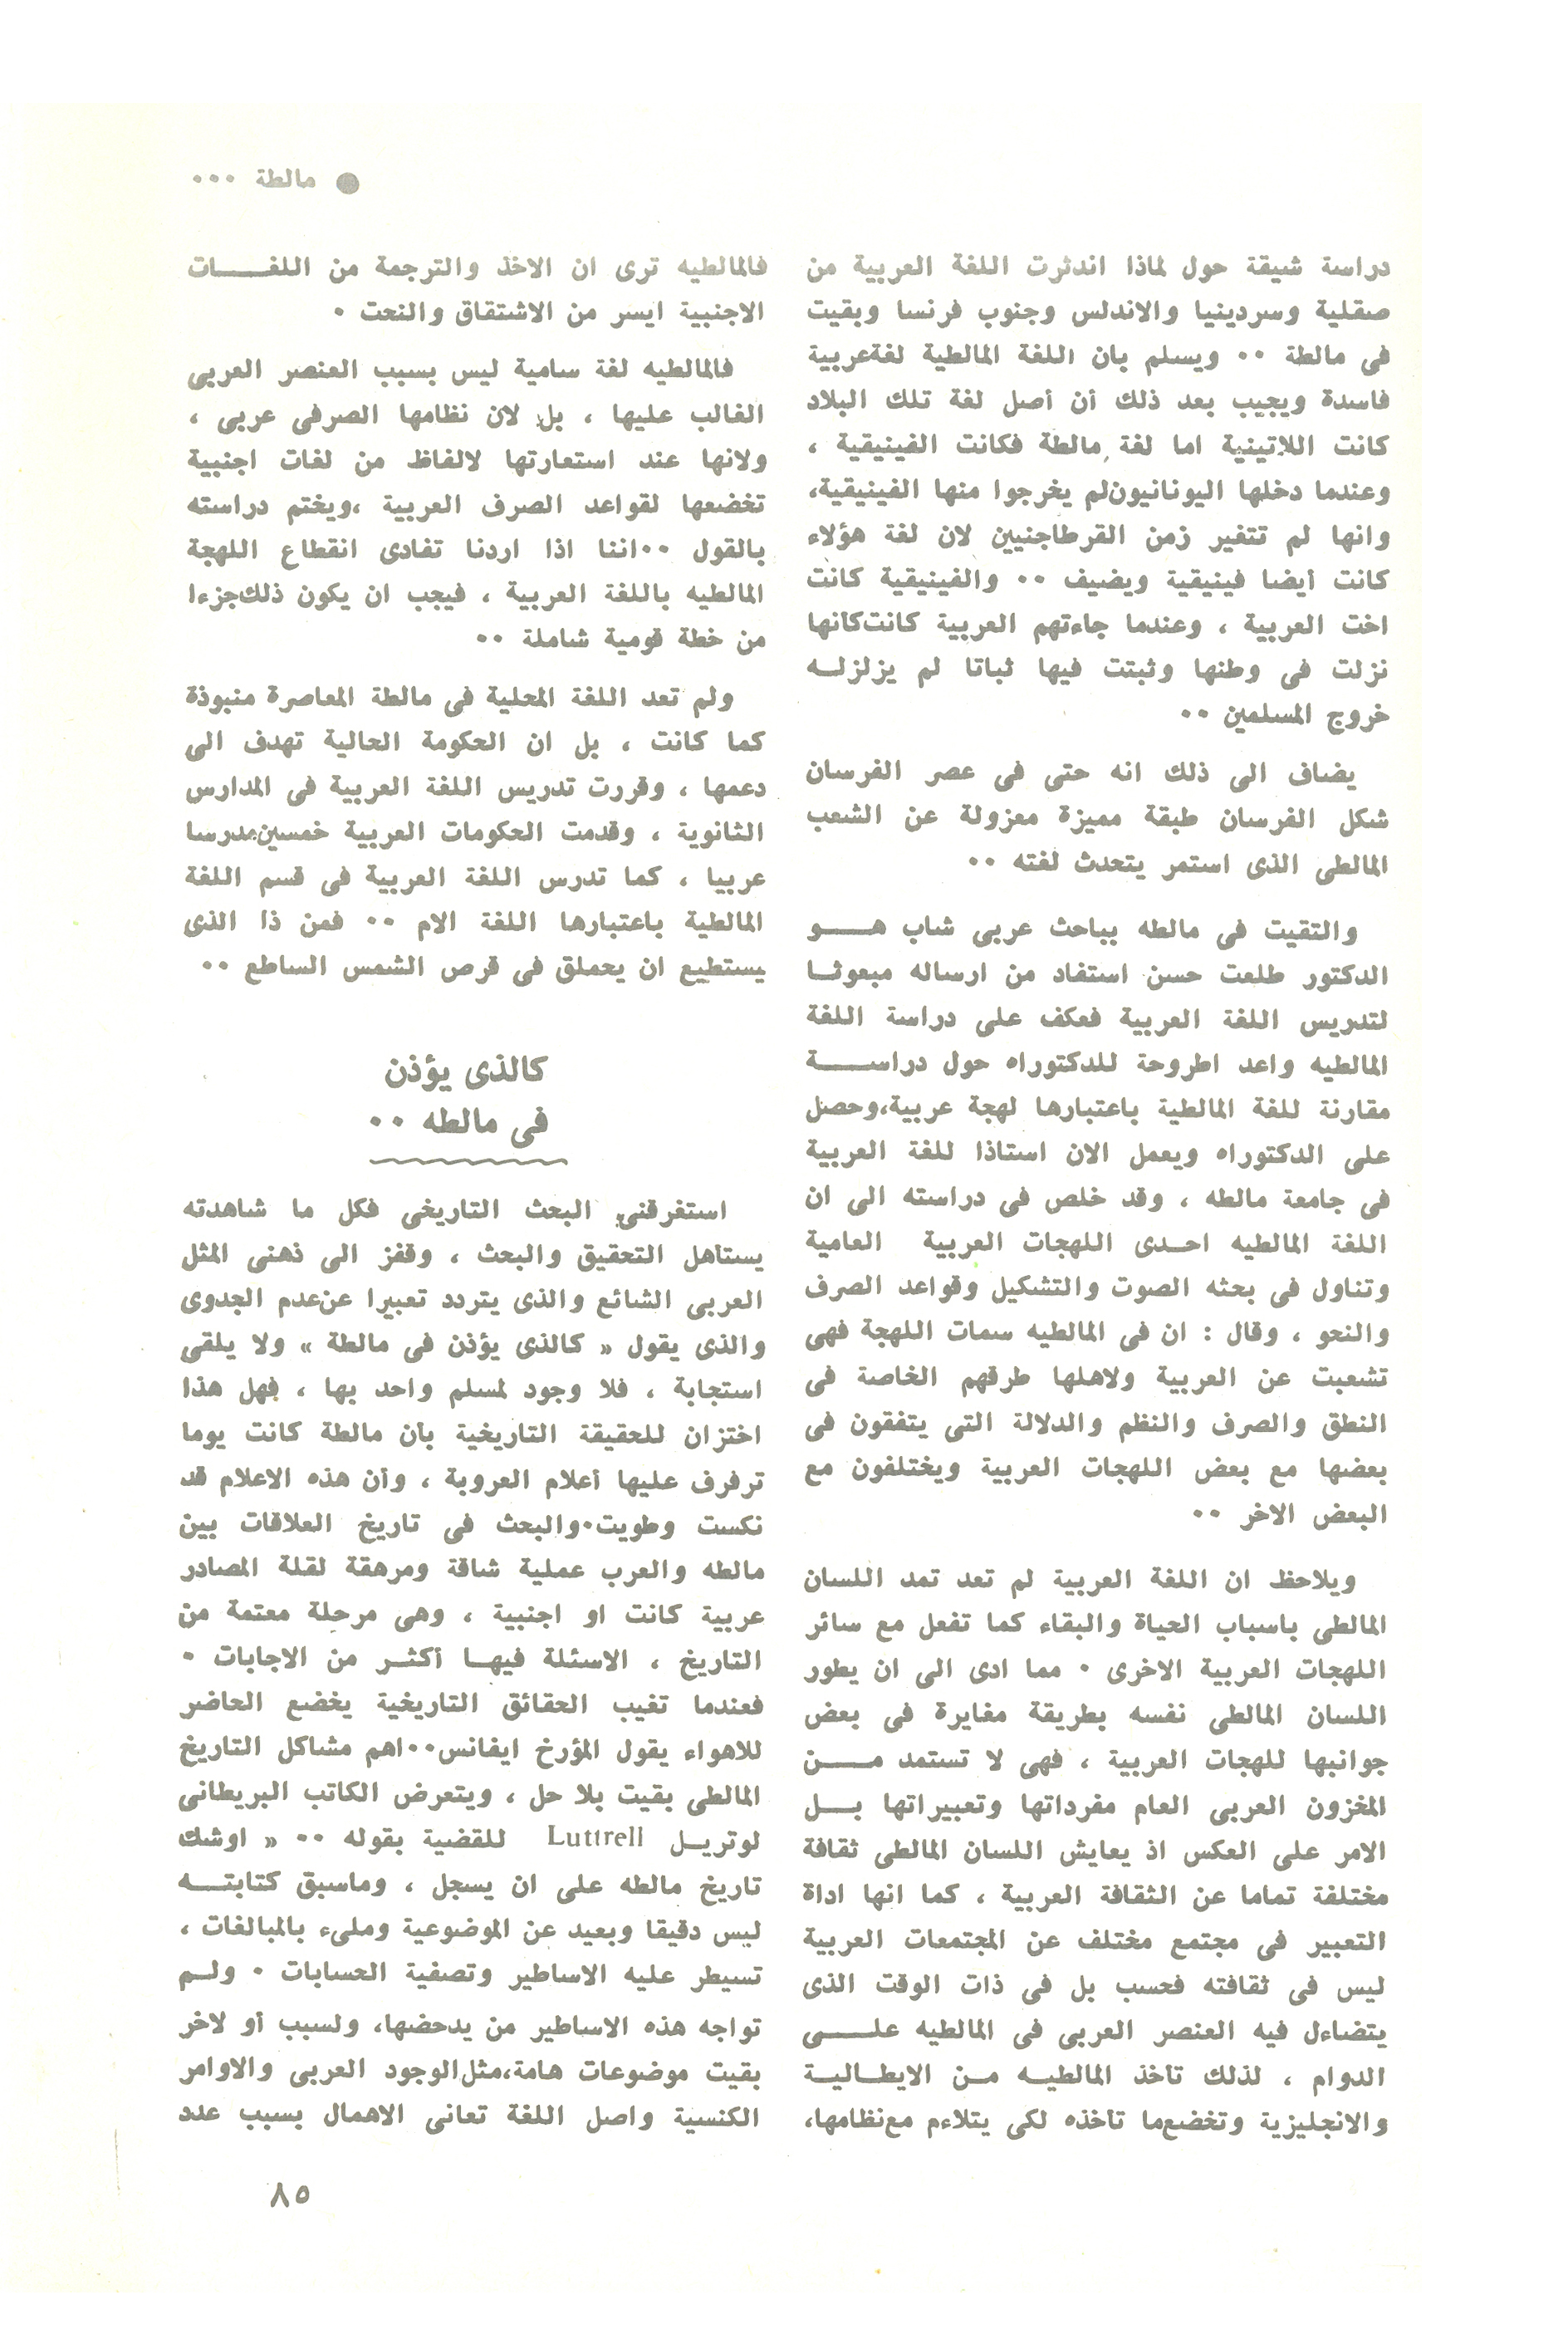 ● مالطة ٠٠٠
دراسة شيقة حول لماذا اندثرت اللغة العربية من
صقلية وسردينيا والاندلس وجنوب فرنسا وبقيت
فى مالطة ٠٠ ويسلم بان اللغة المالطية لغةعربية
فاسدة ويجيب بعد ذلك أن أصل لغة تلك البلاد
كانت اللاتينية اما لغة مالطة فكانت الفينيقية ،
وعندما دخلها اليونانيون لم يخرجوا منها الفينيقية،
وانها لم تتغير زمن القرطاجنيين لان لغة هؤلاء
كانت أيضا فينيقية ويضيف ٠٠ والفينيقية كانت
اخت العربية ، وعندما جاءتهم العربية كانت كانها
نزلت فى وطنها وثبتت فيها ثباتا لم يزلزلـه
خروج المسلمين ٠٠
يضاف الى ذلك انه حتى فى عصر الفرسان
شكل الفرسان طبقة مميزة معزولة عن الشعب
المالطى الذى استمر يتحدث لغته ٠٠
والتقيت فى مالطه بباحث عربى شاب هـــو
الدكتور طلعت حسن استفاد من ارساله مبعوثـا
لتدريس اللغة العربية فعكف على دراسة اللغة
المالطيه واعد اطروحة للدكتوراه حول دراســـة
مقارنة للغة المالطية باعتبارها لهجة عربية،وحصل
على الدكتوراه ويعمل الان استاذا للغة العربية
فى جامعة مالطه ، وقد خلص فى دراسته الى ان
اللغة المالطيه احـدى اللهجات العربية العامية
وتناول فى بحثه الصوت والتشكيل وقواعد الصرف
والنحو ، وقال : ان فى المالطيه سمات اللهجة فهى
تشعبت عن العربية ولاهلها طرقهم الخاصة فى
النطق والصرف والنظم والدلالة التى يتفقون فى
بعضها مع بعض اللهجات العربية ويختلفون مع
البعض الاخر ٠٠
ويلاحظ ان اللغة العربية لم تعد تمد اللسان
المالطى باسباب الحياة والبقاء كما تفعل مع سائر
اللهجات العربية الاخرى ٠ مما ادى الى ان يطور
اللسان المالطى نفسه بطريقة مغايرة فى بعض
جوانبها للهجات العربية ، فهى لا تستمد مـــن
المخزون العربى العام مفرداتها وتعبيراتها بــل
الامر على العكس اذ يعايش اللسان المالطى ثقافة
مختلفة تماما عن الثقافة العربية ، كما انها اداة
التعبير فى مجتمع مختلف عن المجتمعات العربية
ليس فى ثقافته فحسب بل فى ذات الوقت الذى
يتضاءل فيه العنصر العربى فى المالطيه علـــى
الدوام ، لذلك تاخذ المالطيـه مـن الايطـاليـة
والانجليزية وتخضع ما تاخذه لكى يتلاءم مع نظامها،
فالمالطيه ترى ان الاخذ والترجمة من اللغـــات
الاجنبية ايسر من الاشتقاق والنحت ٠
فالمالطيه لغة سامية ليس بسبب العنصر العربى
الغالب عليها ، بل لان نظامها الصرفى عربى ،
ولانها عند استعارتها لالفاظ من لغات اجنبية
تخضعها لقواعد الصرف العربية ،ويختم دراسته
بالقول ٠٠اننا اذا اردنا تفادى انقطاع اللهجة
المالطيه باللغة العربية ، فيجب ان يكون ذلك جزءا
من خطة قومية شاملة ٠٠
ولم تعد اللغة المحلية فى مالطة المعاصرة منبوذة
كما كانت ، بل ان الحكومة الحالية تهدف الى
دعمها ، وقررت تدريس اللغة العربية فى المدارس
الثانوية ، وقدمت الحكومات العربية خمسين مدرسا
عربيا ، كما تدرس اللغة العربية فى قسم اللغة
المالطية باعتبارها اللغة الام ٠٠ فمن ذا الذى
يستطيع ان يحملق فى قرص الشمس الساطع ٠٠
كالذى يؤذن
فى مالطه ٠٠
استغرقنى البحث التاريخى فكل ما شاهدته
يستاهل التحقيق والبحث ، وقفز الى ذهنى المثل
العربى الشائع والذى يتردد تعبيرا عن عدم الجدوى
والذى يقول « كالذى يؤذن فى مالطة » ولا يلقى
استجابة ، فلا وجود لمسلم واحد بها ، فهل هذا
اختزان للحقيقة التاريخية بأن مالطة كانت يوما
ترفرف عليها أعلام العروبة ، وأن هذه الاعلام قد
نكست وطويت٠والبحث فى تاريخ العلاقات بين
مالطه والعرب عملية شاقة ومرهقة لقلة المصادر
عربية كانت او اجنبية ، وهى مرحلة معتمة من
التاريخ ، الاسئلة فيهـا أكثـر من الاجابات ٠
فعندما تغيب الحقائق التاريخية يخضع الحاضر
للاهواء يقول المؤرخ ايفانس٠٠اهم مشاكل التاريخ
المالطى بقيت بلا حل ، ويتعرض الكاتب البريطانى
لوتريـل Luttrell للقضية بقوله ٠٠ « اوشك
تاريخ مالطه على ان يسجل ، وماسبق كتابتــه
ليس دقيقا وبعيد عن الموضوعية وملىء بالمبالغات ،
تسيطر عليه الاساطير وتصفية الحسابات ٠ ولـم
تواجه هذه الاساطير من يدحضها، ولسبب أو لاخر
بقيت موضوعات هامة،مثل الوجود العربى والاوامر
الكنسية واصل اللغة تعانى الاهمال بسبب عدد
٨٥